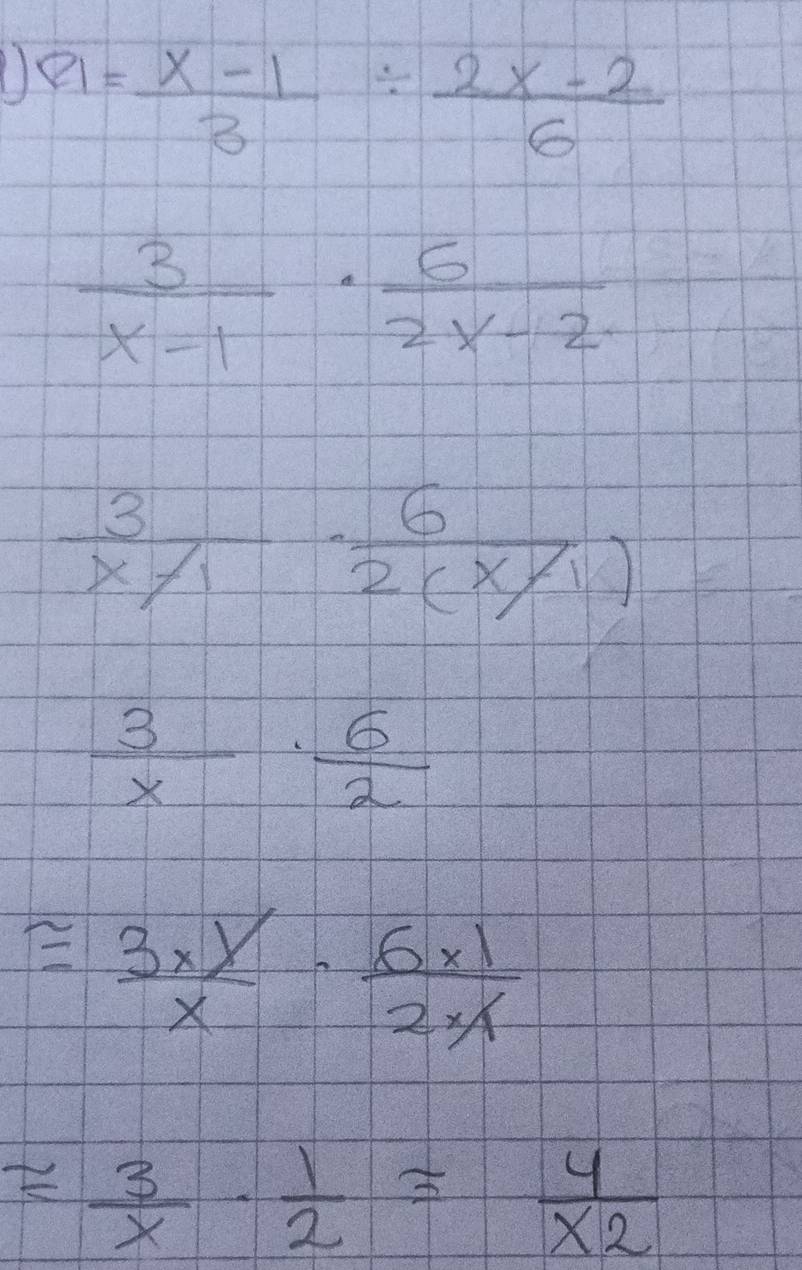 1) Q1 = x - 1 / 3 ÷ 2x - 2 / 6
3 / x - 1 · 6 / 2x - 2
3 / x - 1 · 6 / 2(x - 1)
3 / x · 6 / 2
≅ 3 × y / x · 6 × 1 / 2 × 1
≅ 3 / x · 1 / 2 ≅ 4 / x2